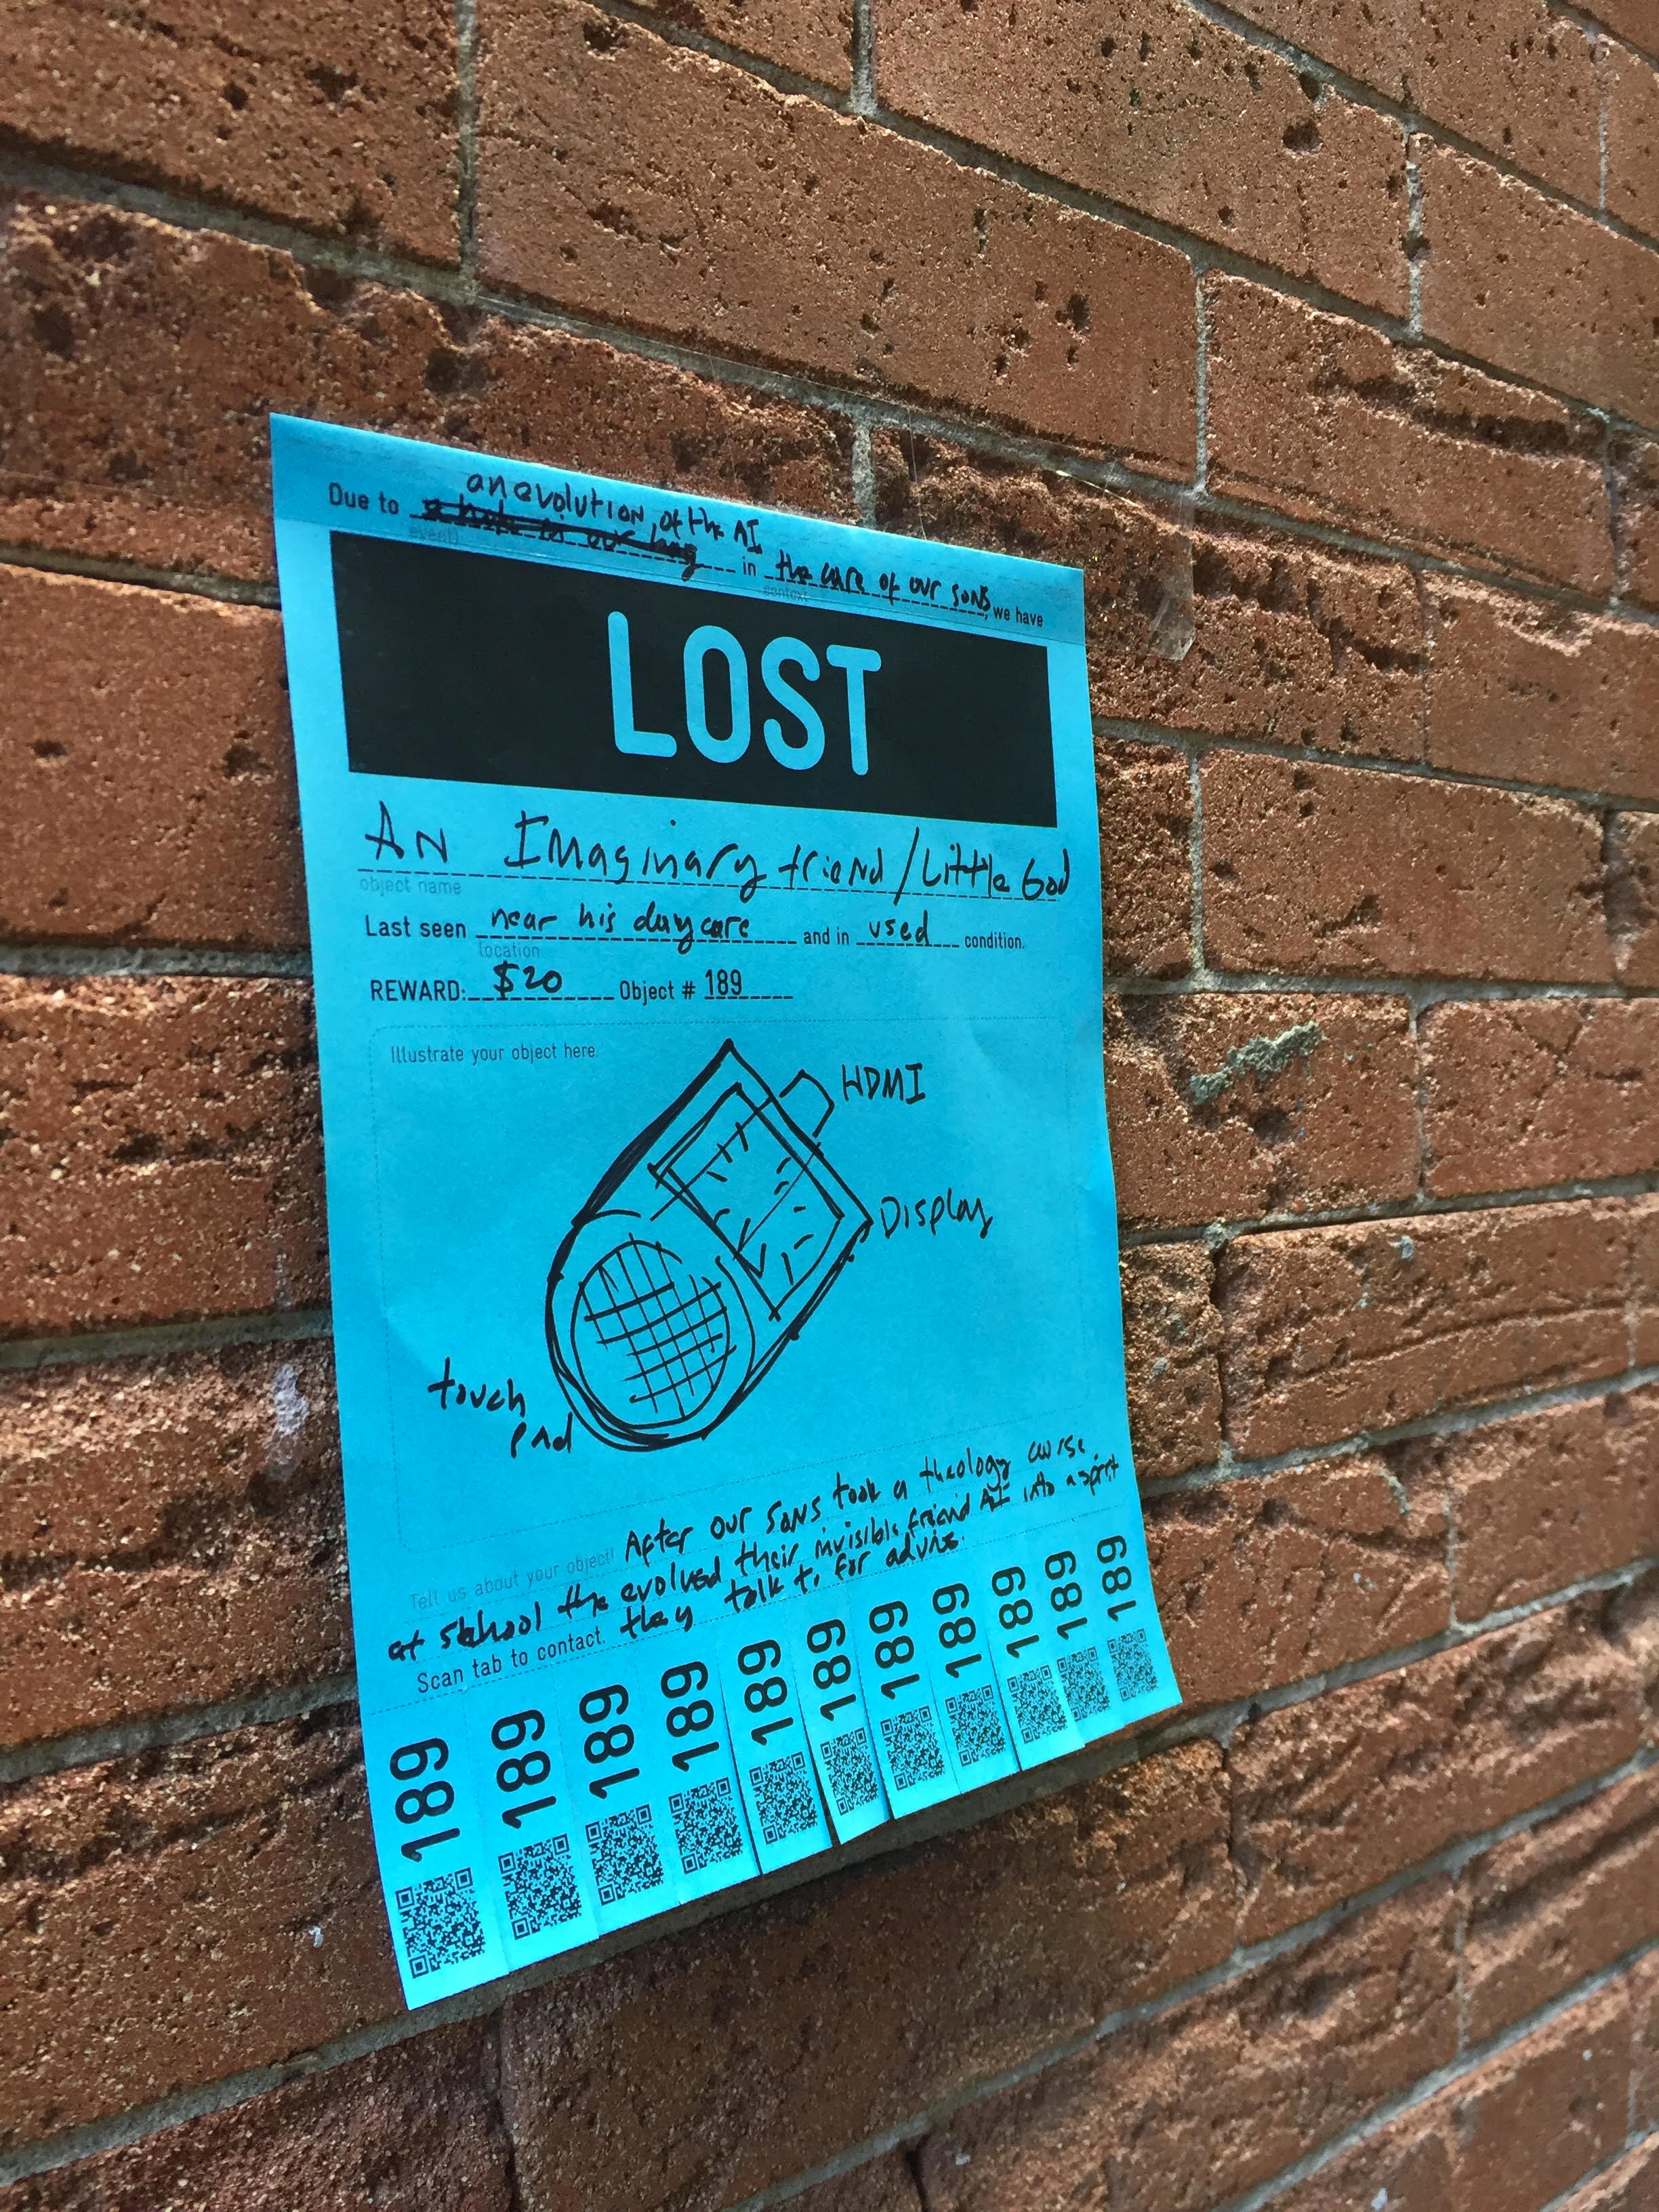 an evolution, of the AI
Due to in the care of our sons, we have
event) context
LOST
AN Imaginary friend / Little God
object name
Last seen near his daycare and in used condition.
location
REWARD: $20 Object # 189
Illustrate your object here.
HDMI
Display
touch
pad
Tell us about your object! After our sons took a theology course
at school the evolved their invisible friend AI into a spirit
they talk to for advise.
Scan tab to contact.
189 189 189 189 189 189 189 189 189 189 189